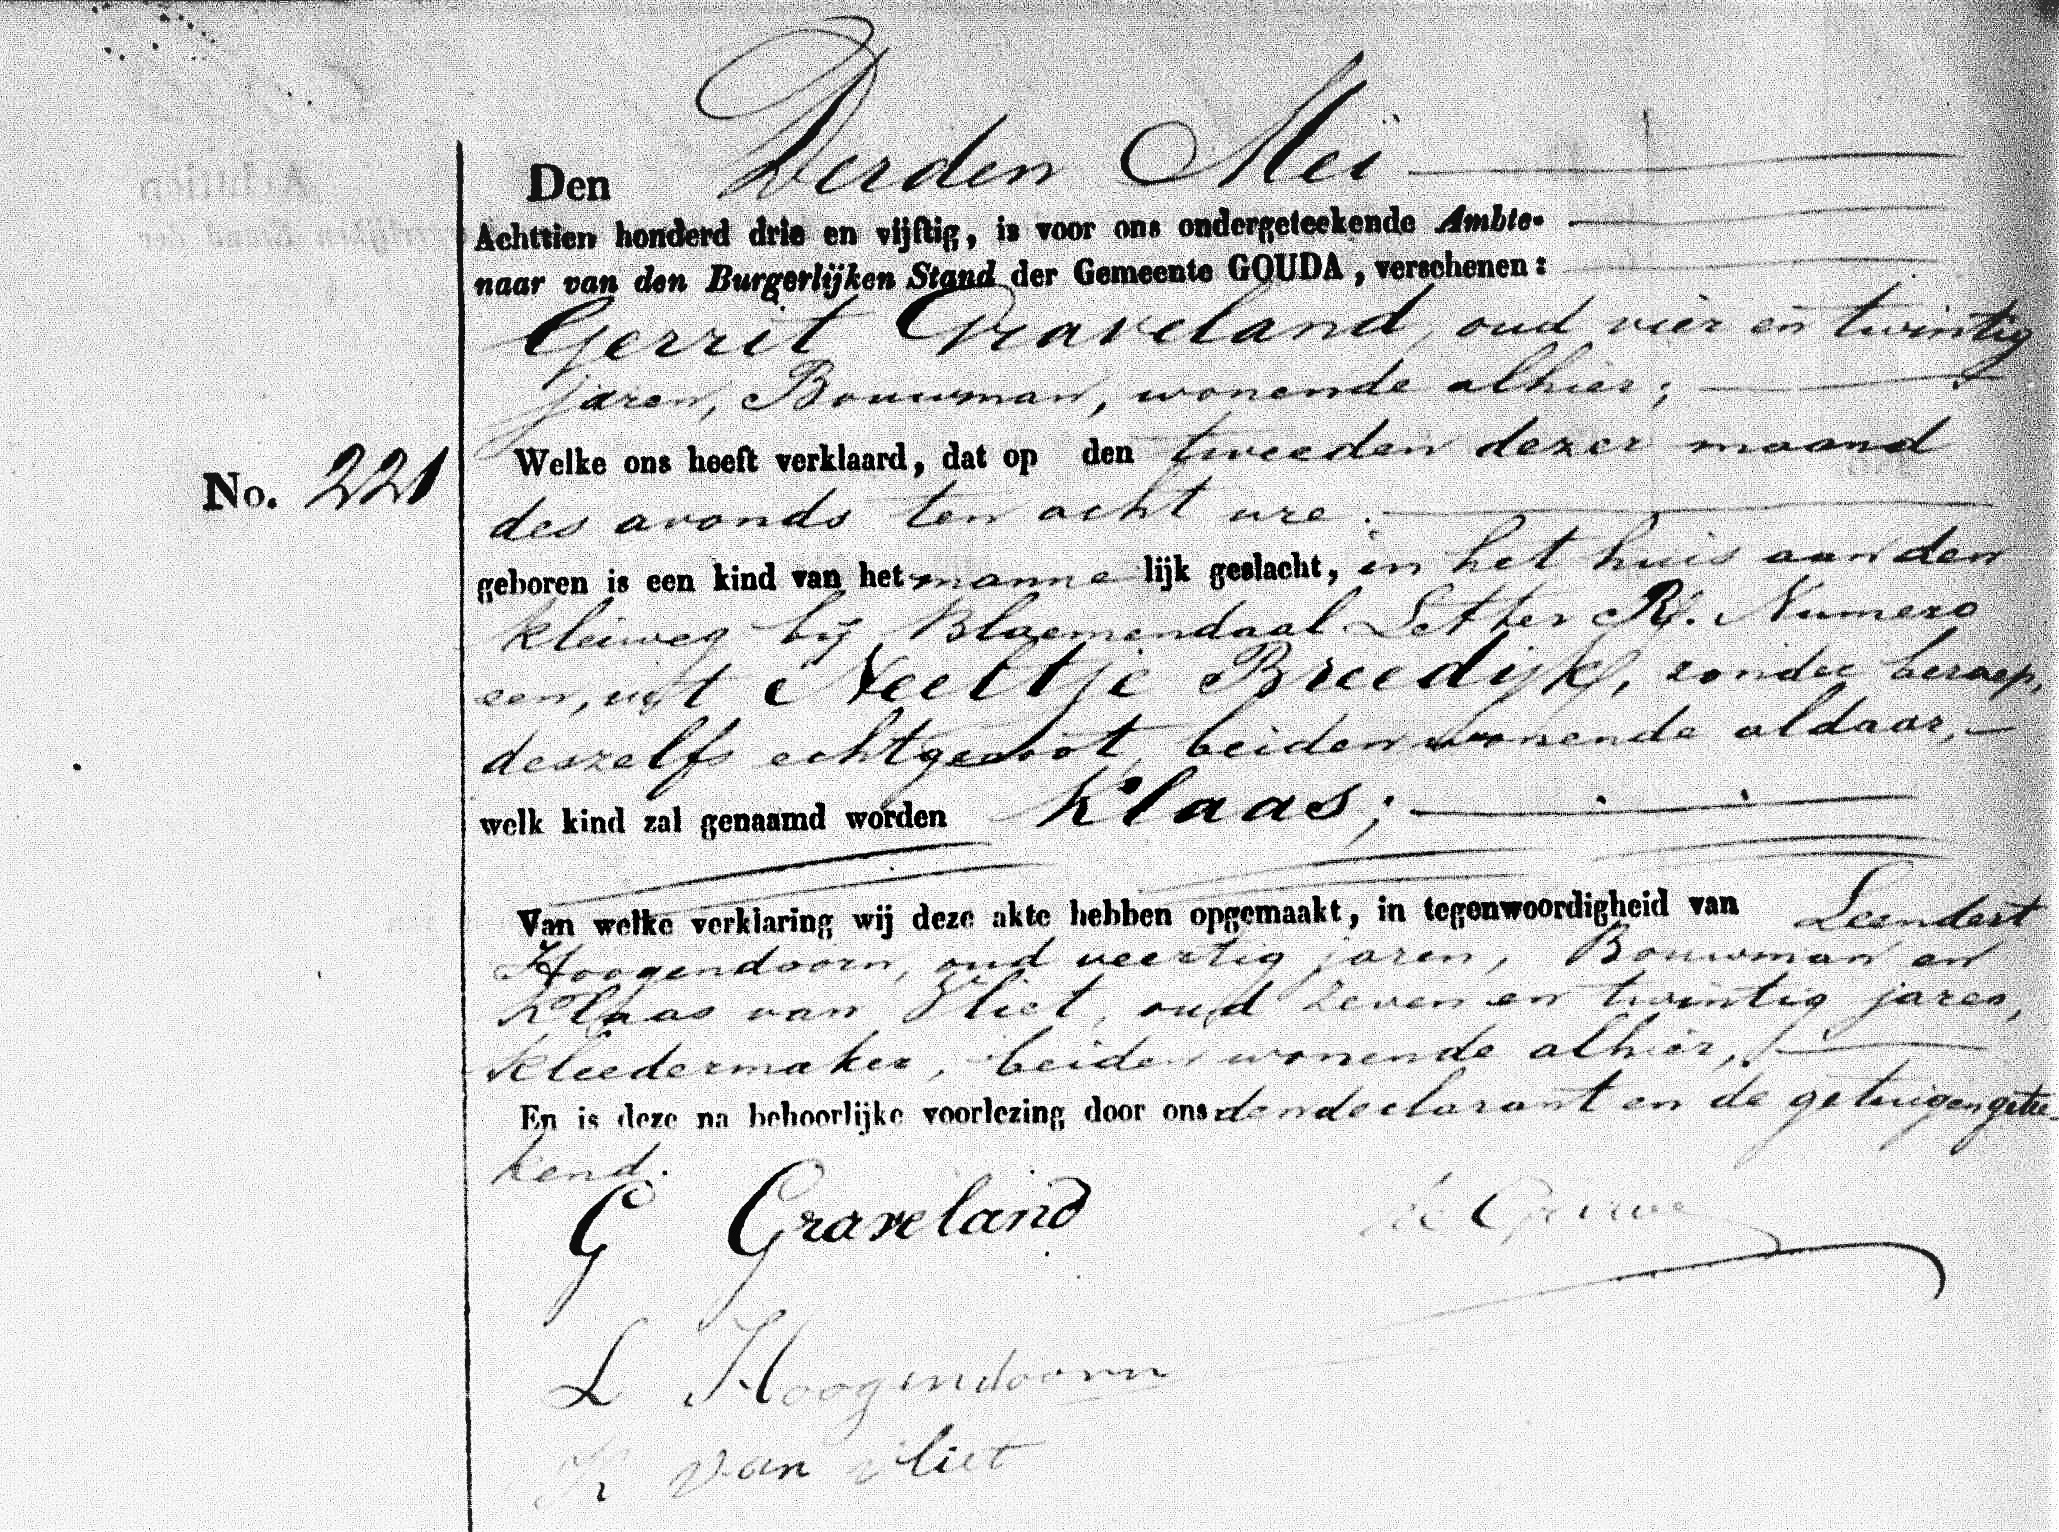 Den Derden Mei
Achttien honderd drie en vijftig, is voor ons ondergeteekende Ambte-
naar van den Burgerlijken Stand der Gemeente GOUDA, verschenen:
Gerrit Graveland, oud vier en twintig
jaren, Bouwman, wonende alhier;
Welke ons heeft verklaard, dat op den tweeden dezer maand
No. 221
des avonds ten acht ure.
geboren is een kind van het manne lijk geslacht, in het huis aan den
kleiweg bij Bloemendaal Letter R. Numero
een, uit Neeltje Breedijk, zonder beroep,
deszelfs echtgenoot, beiden wonende aldaar,
welk kind zal genaamd worden Klaas;
Van welke verklaring wij deze akte hebben opgemaakt, in tegenwoordigheid van Leendert
Hoogendoorn, oud veertig jaren, Bouwman en
Klaas van Vliet, oud zeven en twintig jaren,
kleedermaker, beiden wonende alhier,
En is deze na behoorlijke voorlezing door ons den declarant en de getuigen getee-
kend.
G Graveland
L Hoogendoorn
K van Vliet